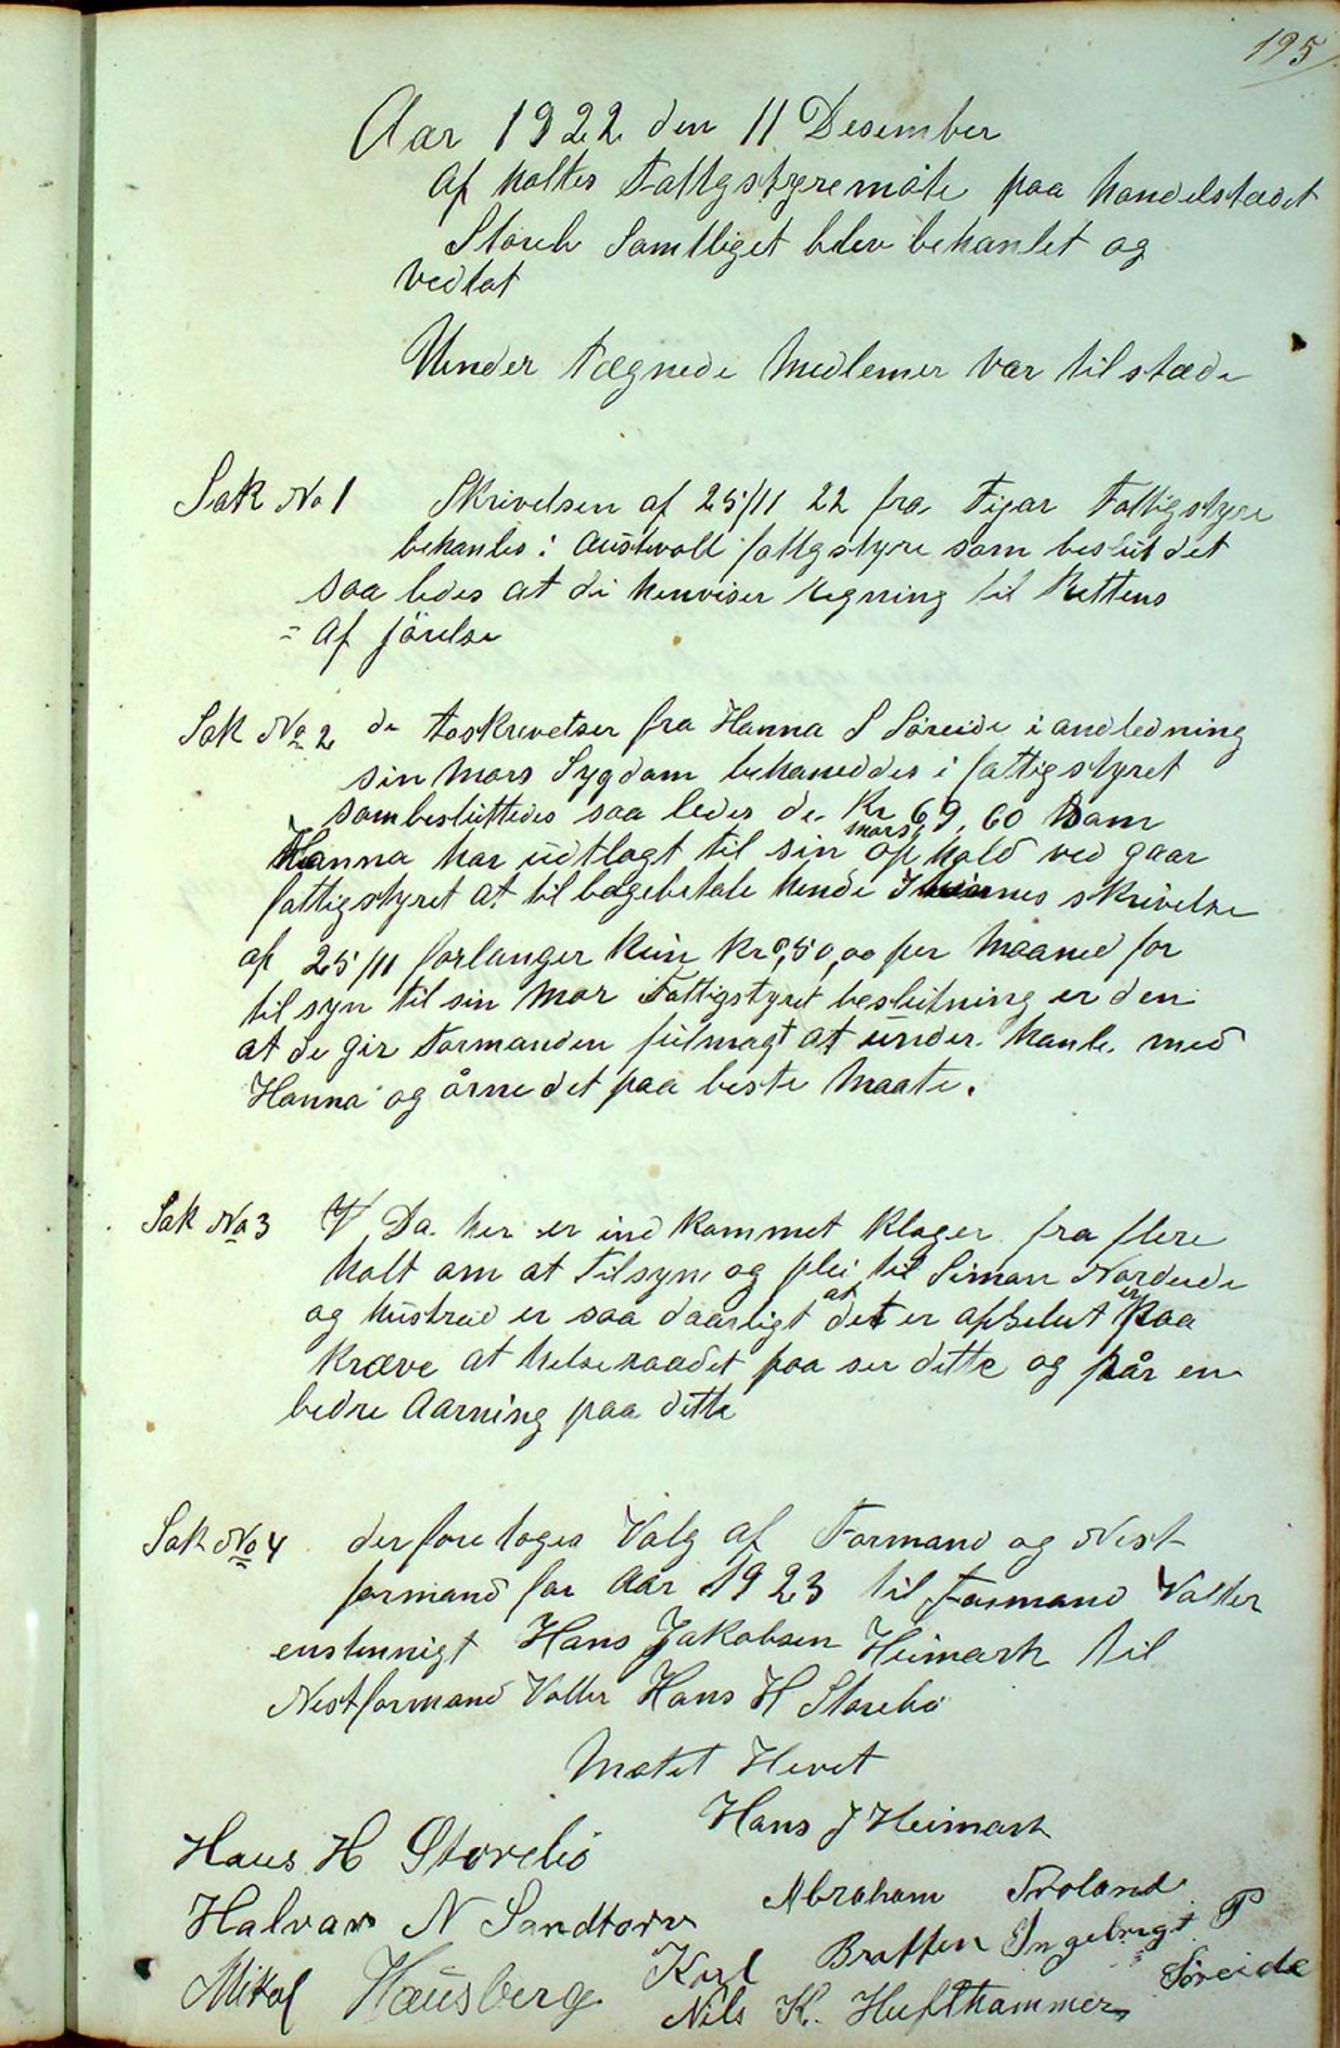 195
Aar 1922 den 11 Desember
af holtes Fattgstyremöte paa handelstædet
Storeb Samtliget blev behanlet og
vedtat
Under tægnede Medlemer var tilstæde
Sak No 1 Skrivelsen af 25/11 22 fra Fijar Fattigstyre
behanles i Austevoll fattgstyre som beslut det
saa ledes at di henviser regning til Rettens
= af jörelse
Sak No 2 de toskrivelser fra Hanna S Söreide i andledning
sin Mors Sygdom behaneddes i fattigstyret
sombesluttedes saa ledes de Kr 69,60 som
Hanna har udtlagt til sin mors ophold ved gaar
fattigstyret at tilbagebetale hende I hinnes skrivelse
af 25/11 forlanger kun Kr 50,00 per Maaned for
til syn til sin Mor Fattigstyret beslutning er den
at de gir Formanden fulmagt at under hanle med
Hanna og årne det paa beste Maate.
Sak No 3 Da her er ind kommet Klager fra flere
holt om at Tilsyn og plei til Simon Nordeide
og hustrud er saa daarligt at det er apselut er paa
kræve at helseraadet paa ser dette og får en
bedre Aarning paa dette
Sak No 4 der fore toges Valg af Formand og Nest-
formand for Aar 1923 til Formand Valter
enstemnigt Hans Jakobsen Heimark til
Nestformand Valter Hans H Storebö
Møtet Hevet
Hans J Heimark
Haus H Storebö
Abraham Troland
Halvar N Sandtorv
Karl Bratten Ingebrigt P
Söreide
Mikal Hausberg
Nils K. Hufthammer